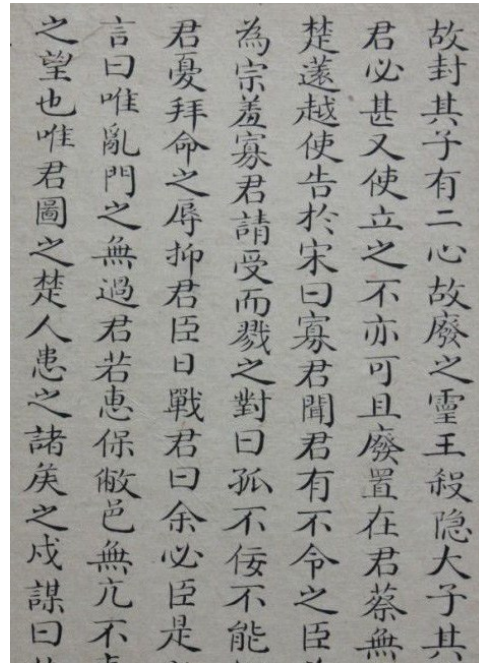 故封其子有二心故廢之靈王殺隐大子其
君必甚又使立之不亦可且廢置在君蔡無
楚薳越使告於宋曰寡君聞君有不令之臣
為宗羞寡君請受而戮之對曰孤不佞不能
君憂拜命之辱抑君臣日戰君曰余必臣是
言曰唯亂門之無過君若惠保敝邑無亢不
之望也唯君圖之楚人患之諸矦之戍謀曰